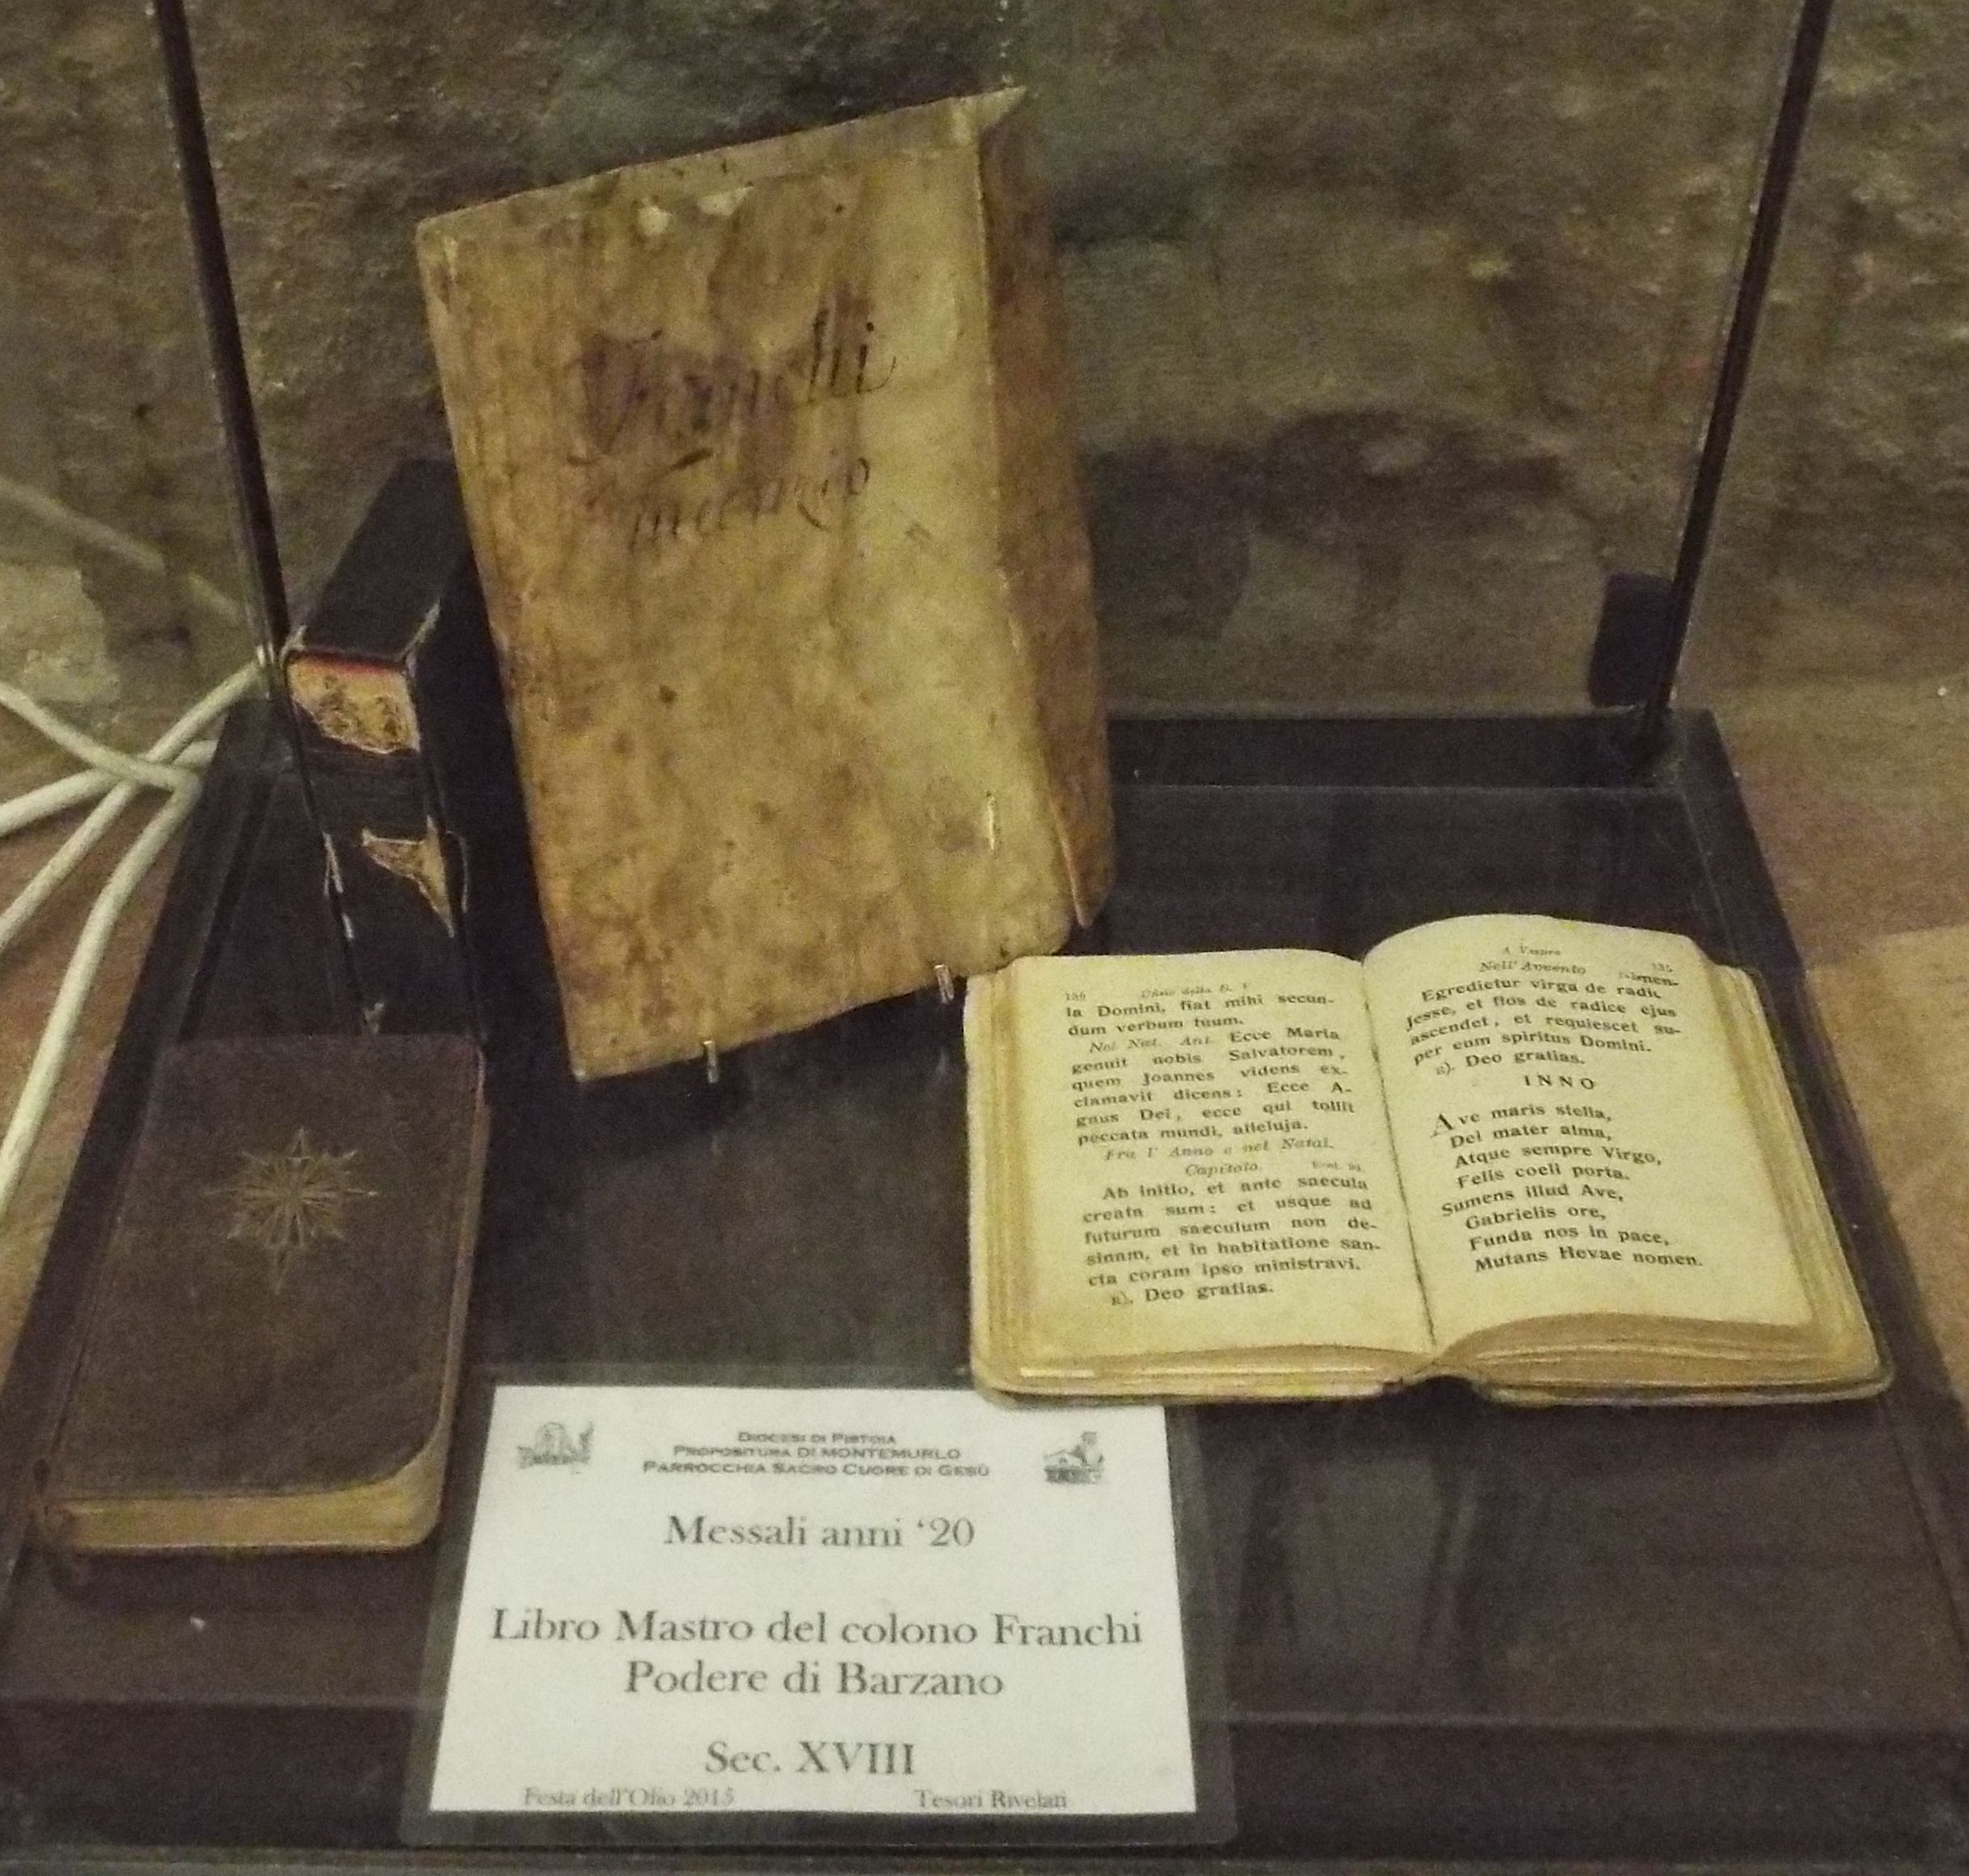 Franchi
la Domini, fiat mihi secun-
dum verbum tuum.
Nel Nat. Ant. Ecce Maria
genuit nobis Salvatorem,
quem Joannes videns ex-
clamavit dicens: Ecce A-
gnus Dei, ecce qui tollit
peccata mundi, alleluja.
Fra l' Anno e nel Natal.
Capitolo.
Ab initio, et ante saecula
creata sum: et usque ad
futurum saeculum non de-
sinam, et in habitatione san-
cta coram ipso ministravi.
℟. Deo gratias.
A Vespro
Nell'Avvento
Egredietur virga de radic
Jesse, et flos de radice ejus
ascendet, et requiescet su-
per eum spiritus Domini.
℟. Deo gratias.
INNO
Ave maris stella,
Dei mater alma,
Atque sempre Virgo,
Felis coeli porta.
Sumens illud Ave,
Gabrielis ore,
Funda nos in pace,
Mutans Hevae nomen.
DIOCESI DI PISTOIA
PROPOSITURA DI MONTEMURLO
PARROCCHIA SACRO CUORE DI GESÙ
Messali anni '20
Libro Mastro del colono Franchi
Podere di Barzano
Sec. XVIII
Festa dell'Olio 2015 Tesori Rivelati